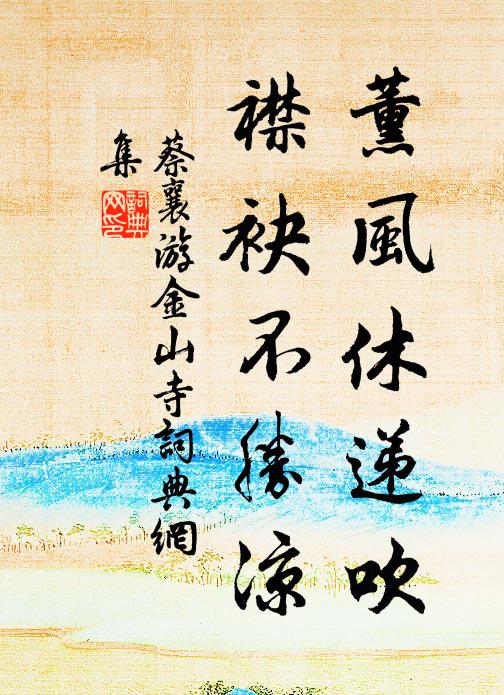 薰風休递吹
襟袂不勝凉
蔡襄游金山寺詞典網
集
詞典
网印